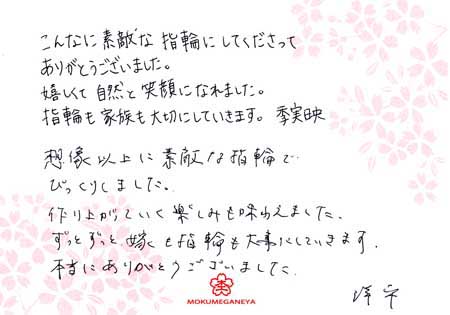 こんなに素敵な指輪にしてくださって
ありがとうございました。
嬉しくて自然と笑顔になれました。
指輪も家族も大切にしていきます。 季実映
想像以上に素敵な指輪で
びっくりしました。
作り上がっていく楽しみも味わえました。
ずっとずっと嫁も指輪も大事にしていきます。
本当にありがとうございました。
MOKUMEGANEYA